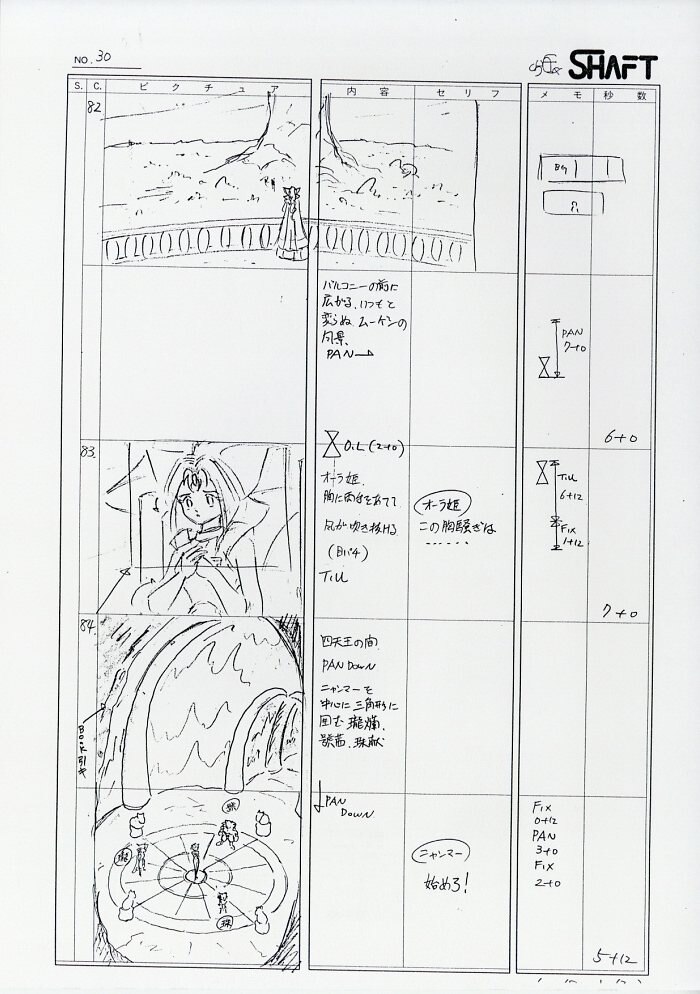 NO. 30
SHAFT
S. C. ピクチュア 内容 セリフ メモ 秒数
82.
BG
バルコニーの前に
広がる、いつもと
変らぬ ムーケンの
PAN→
PAN
7+0
6+0
83.
O.L (2+0)
オーラ姫、
胸に両手をあてて
風が吹き抜ける
T.U
オーラ姫
この胸騒ぎは
......
T.U
6+12
Fix
1+12
7+0
84.
四天王の間
PAN DOWN
ニャンマーを
中心に三角形に
囲む
BOOK引キ
PAN
DOWN
ニャンマー
始めろ!
Fix
0+12
PAN
3+0
Fix
2+0
5+12